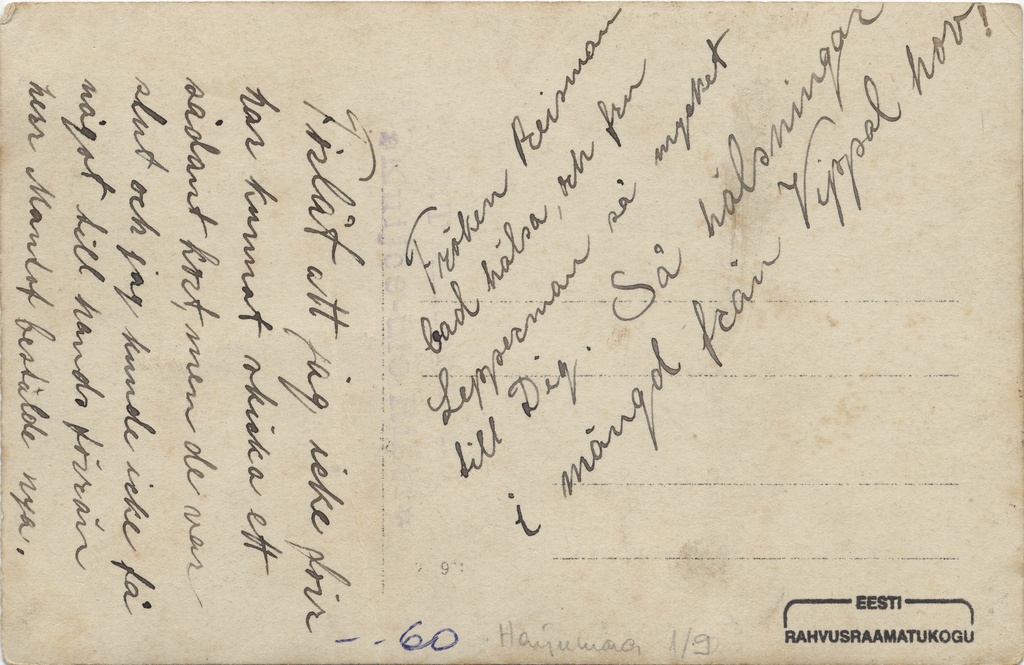 Förlåt att jag icke förr
har kunnat skicka ett
sådant kort men de var
slut och jag kunde icke få
något till hands förrän
herr Mandot bestälde nya.
Fröken Reisman
bad hälsa, och fru
Lepperman så mycket
till Dig. Så hälsningar
i mängd från Vippal hov!
- . 60
Harjumaa 1/9
EESTI
RAHVUSRAAMATUKOGU